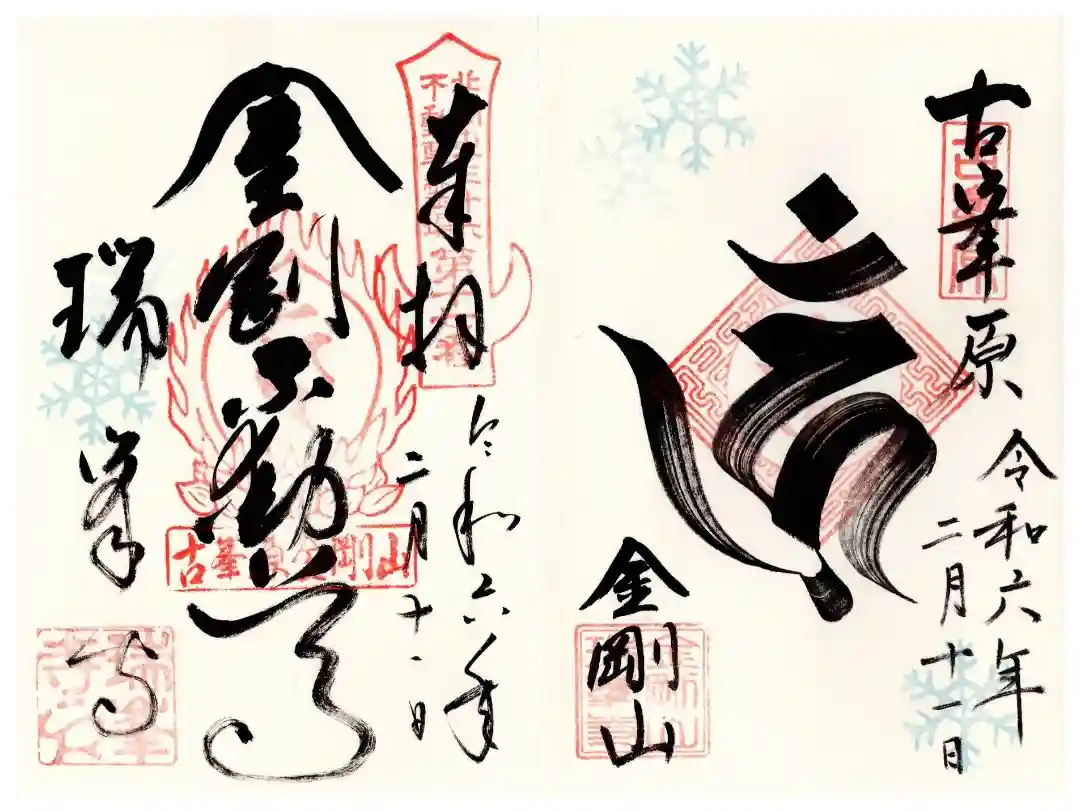 古峯原
令和六年
二月十一日
金剛山
奉拝
令和六年
二月十一日
金剛不動尊
古峯原金剛山
瑞峯寺